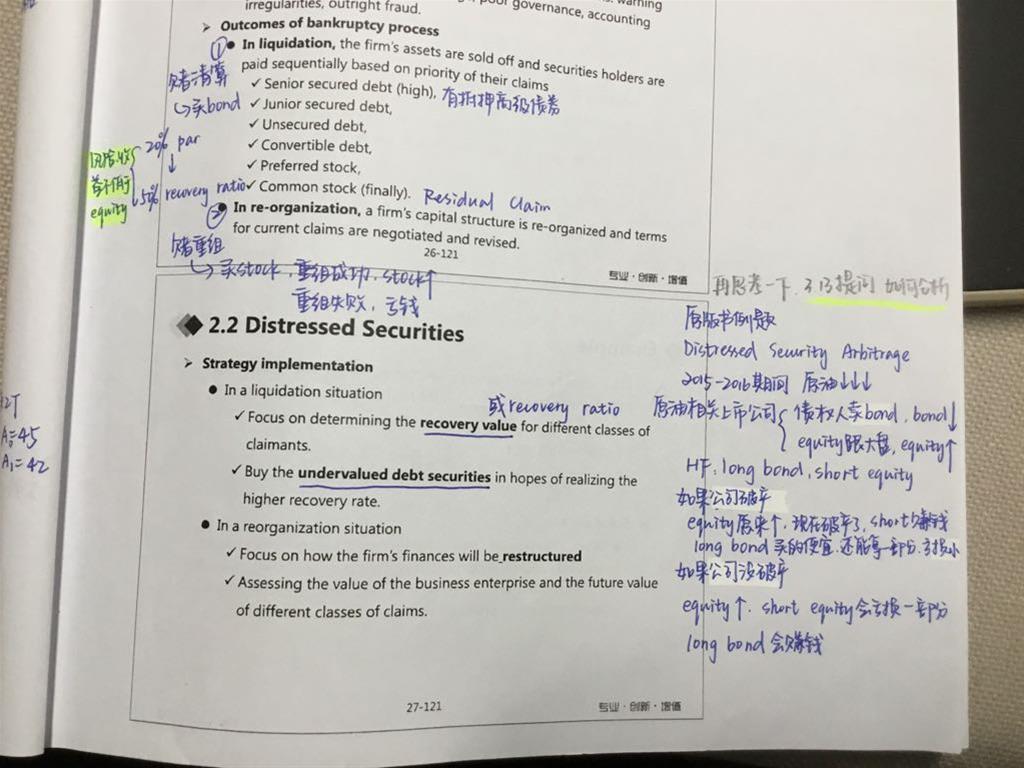 warning
poor governance, accounting
irregularities, outright fraud.
➢ Outcomes of bankruptcy process
① ● In liquidation, the firm's assets are sold off and securities holders are
paid sequentially based on priority of their claims
赌清算
↳买bond
✓ Senior secured debt (high), 有抵押高级债券
✓ Junior secured debt,
✓ Unsecured debt,
✓ Convertible debt,
✓ Preferred stock,
✓ Common stock (finally). Residual Claim
20% par
↓
50% recovery ratio
equity
② ● In re-organization, a firm's capital structure is re-organized and terms
for current claims are negotiated and revised.
赌重组
↳买stock, 重组成功, stock↑
重组失败, 亏钱
26-121
专业·创新·增值
2.2 Distressed Securities
➢ Strategy implementation
● In a liquidation situation
或recovery ratio
✓ Focus on determining the recovery value for different classes of
claimants.
✓ Buy the undervalued debt securities in hopes of realizing the
higher recovery rate.
● In a reorganization situation
✓ Focus on how the firm's finances will be restructured
✓ Assessing the value of the business enterprise and the future value
of different classes of claims.
27-121
专业·创新·增值
再思考一下, 3.13提问 如何分析
原版书例题
Distressed Security Arbitrage
2015-2016期间 原油↓↓↓
原油相关上市公司{ 债权人卖bond, bond↓
equity跟大盘, equity↑
HF: long bond, short equity
如果公司破产
equity原来↑, 现在破产了, short赚钱
long bond 买的便宜, 还能拿一部分, 亏损小
如果公司没破产
equity↑. short equity会亏损一部分
long bond 会赚钱
A₀=45
A₁=42